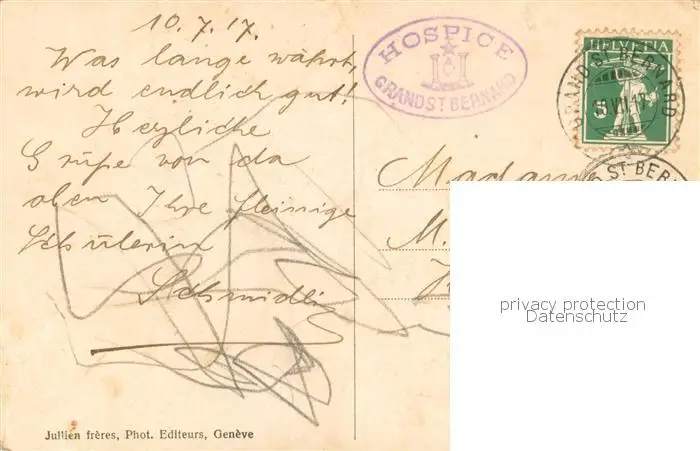 10.7.17.
Was lange währt,
wird endlich gut!
Herzliche
Grüße von da
oben Ihre fleissige
Schülerin
Schmidli
HOSPICE
GRAND ST BERNARD
HELVETIA
5
GRAND ST BERNARD
VII.17
ST BER
Madame
M.
privacy protection
Datenschutz
Jullien frères, Phot. Editeurs, Genève